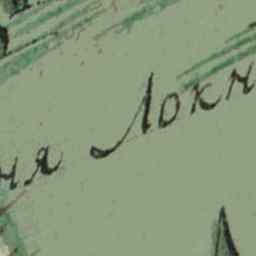 ня Локн